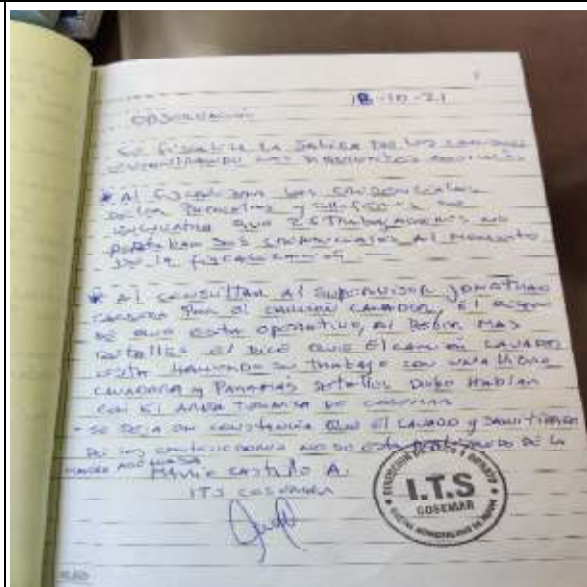 18-10-21
OBSERVACION
SE FISCALIZA LA SALIDA DE LOS CAMIONES
ENCONTRANDO LAS SIGUIENTES
* Al FISCALIZAR LAS CREDENCIALES
DE LOS y SE
QUE 2 TRABAJADORES NO
PORTABAN SUS CREDENCIALES AL MOMENTO
DE LA FISCALIZACION
* Al CONSULTAR Al SUPERVISOR JONATHAN
POR El CAMION LAVADOR, El
DE QUE ESTA OPERATIVO, Al PEDIR MAS
DETALLES El DICE QUE El CAMION LAVADOR
ESTA HACIENDO SU TRABAJO CON UNA HIDRO
LAVADORA y PARA MAS DETALLES DEBO HABLAR
CON El AREA TECNICA DE COSEMAR
- SE DEJA EN CONSTANCIA QUE El LAVADO y SANITIZADO
DE LOS CONTENEDORES NO SE ESTA REALIZANDO DE LA
MANERA ADECUADA
MARIO CASTILLO A.
ITS COSEMAR
I.T.S
COSEMAR